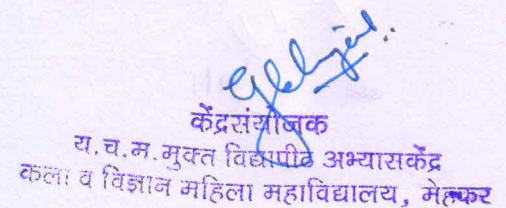 केंद्रसंयोजक
य.च.म.मुक्त विद्यापीठ अभ्यासकेंद्र
कला व विज्ञान महिला महाविद्यालय, मेहकर